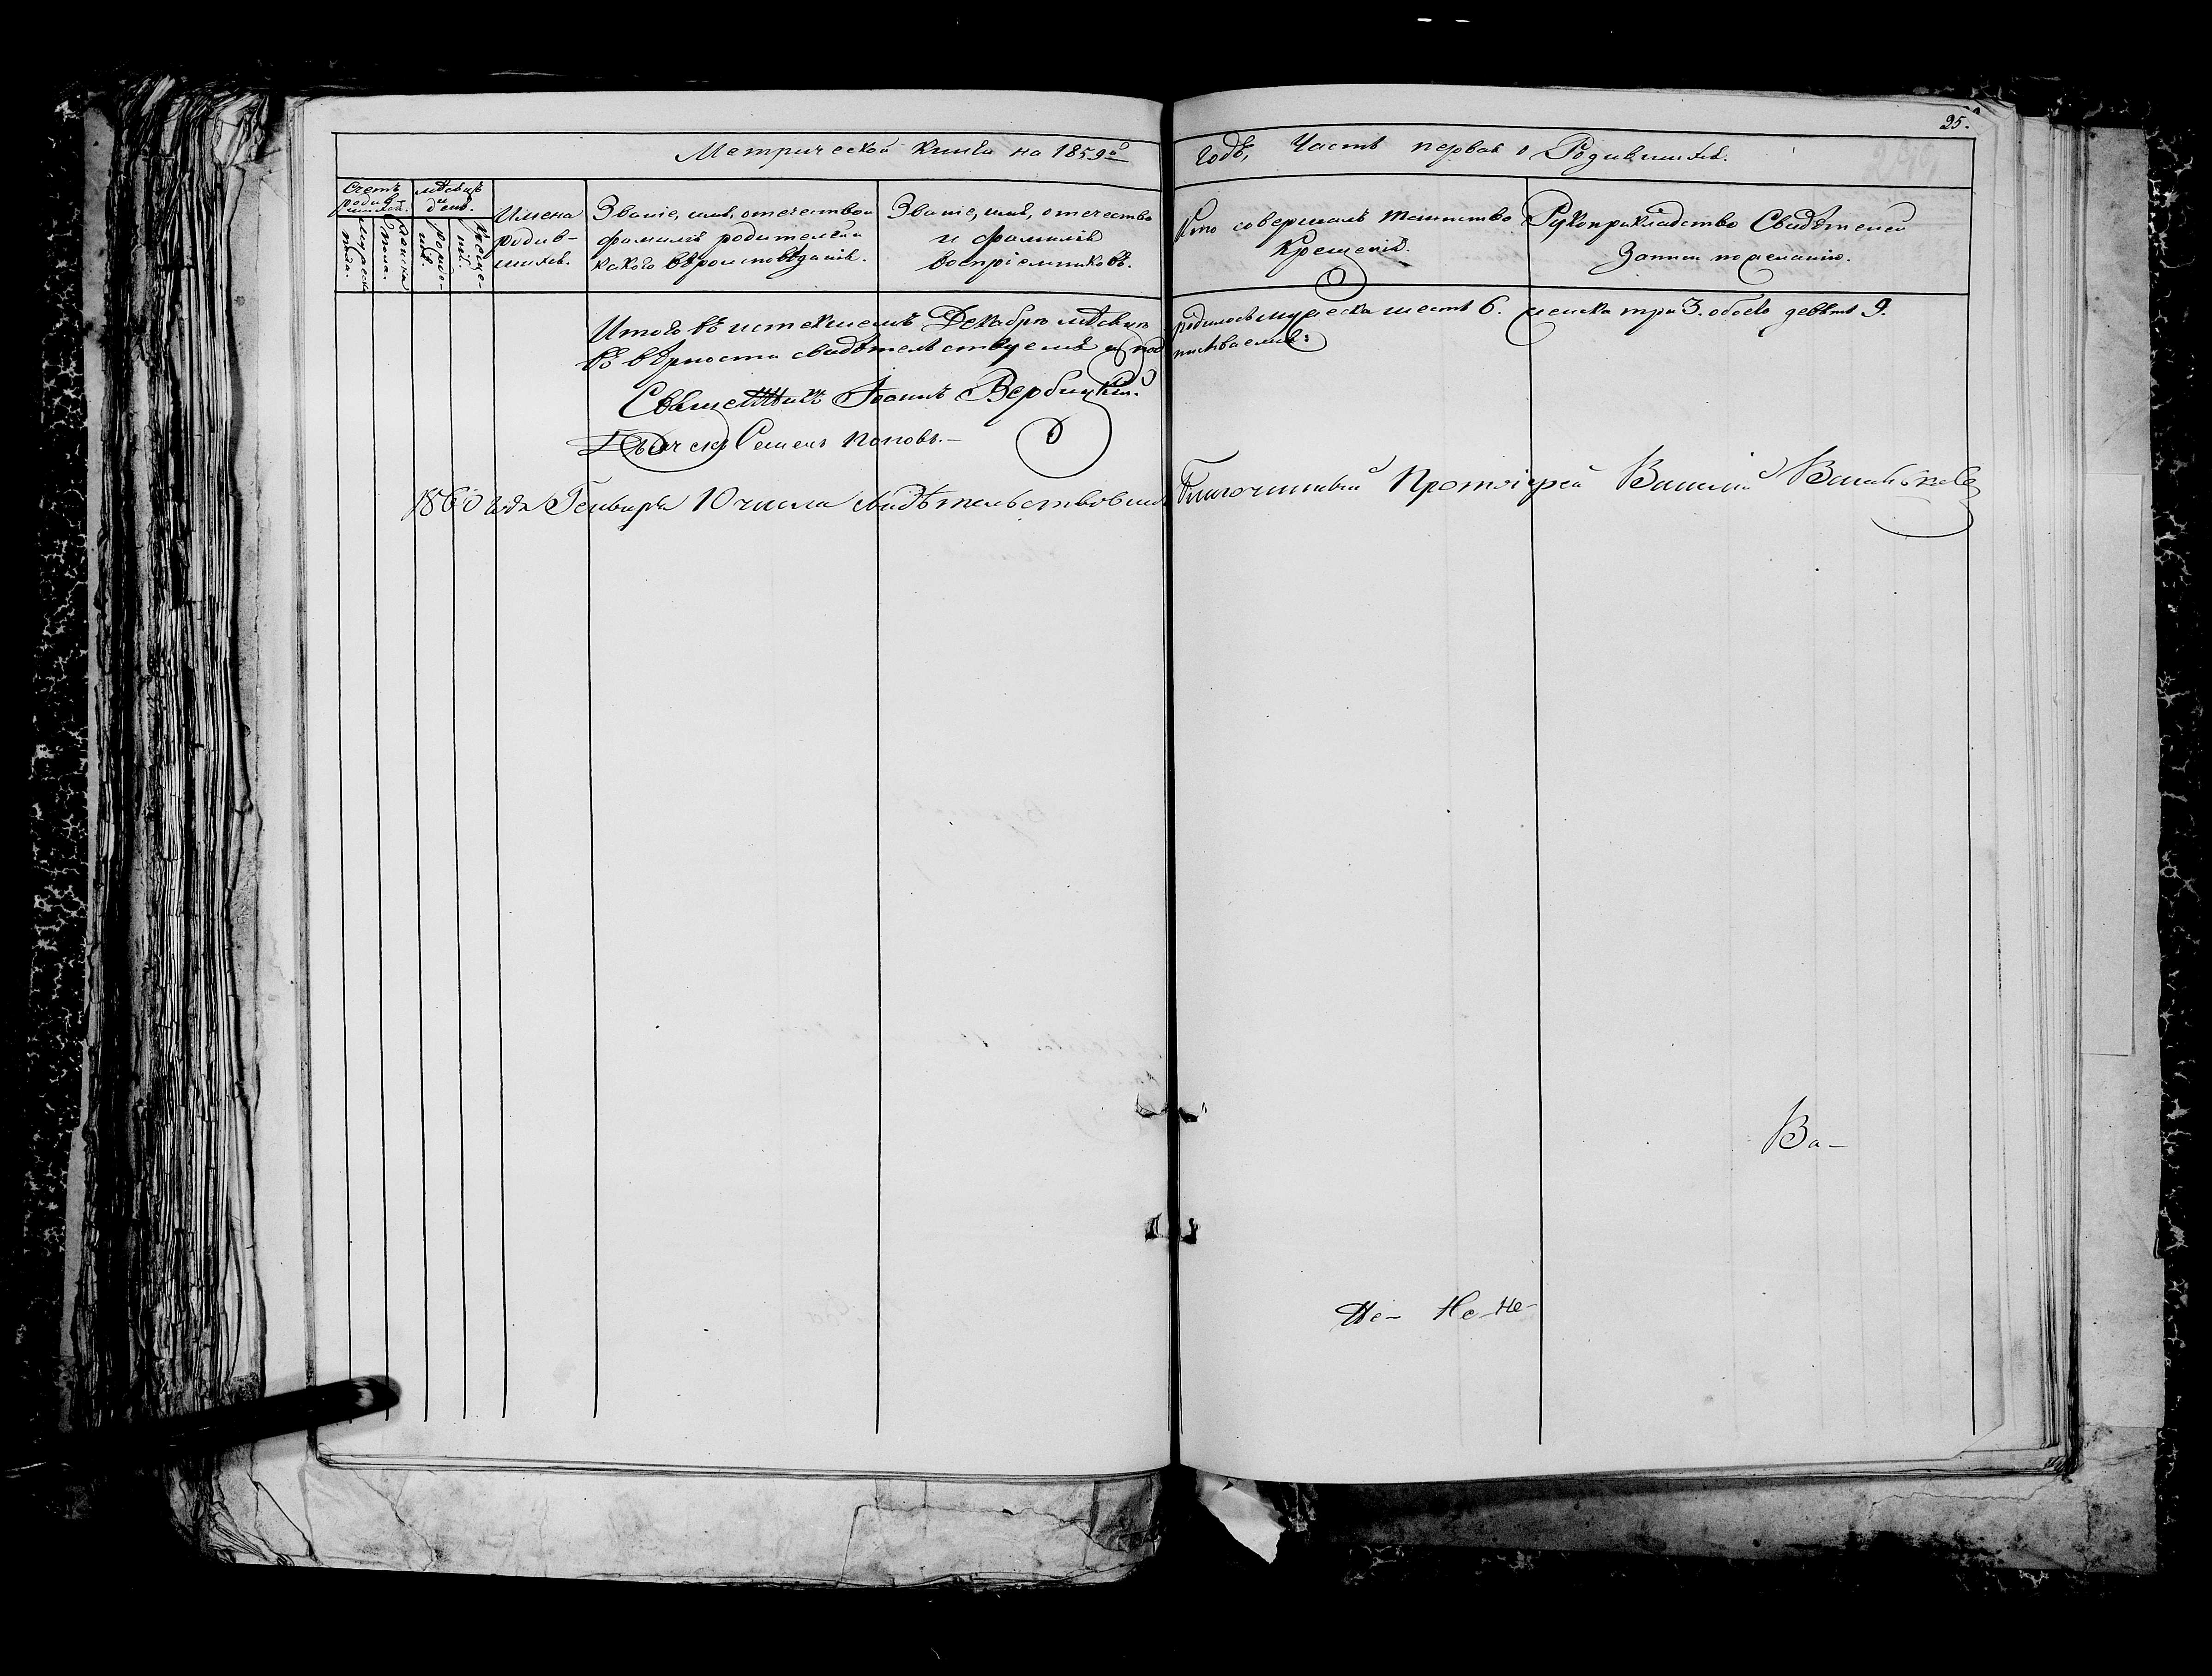 25.
Метрической книги на 1859й годъ, Часть первая о Родившихся.
Счетъ родившихся.
Мужеска пола.
Женска пола.
мѣсяцъ и день.
рожденія.
крещенія.
Имена родив-
шихся.
Званіе, имя, отечество и
фамилія родителей и
какого вѣроисповѣданія.
Званіе, имя, отечество
и фамилія
воспріемниковъ.
Кто совершалъ таинство
крещенія.
Рукоприкладство Свидѣтелей
Записи по желанію.
Итого въ истекшемъ Декабрѣ мѣсяцѣ родилось мужеска шесть 6. женска три 3. обоего девять 9.
Въ вѣрности свидѣтельствуемъ и подписываемся:
Священникъ Іоаннъ Вербицкій.
Дьячекъ Семенъ Поповъ.—
1860 года Генваря 10 числа свидѣтельствовалъ Благочинный Протоіерей Василій
Ва—
Не— Не—Не—